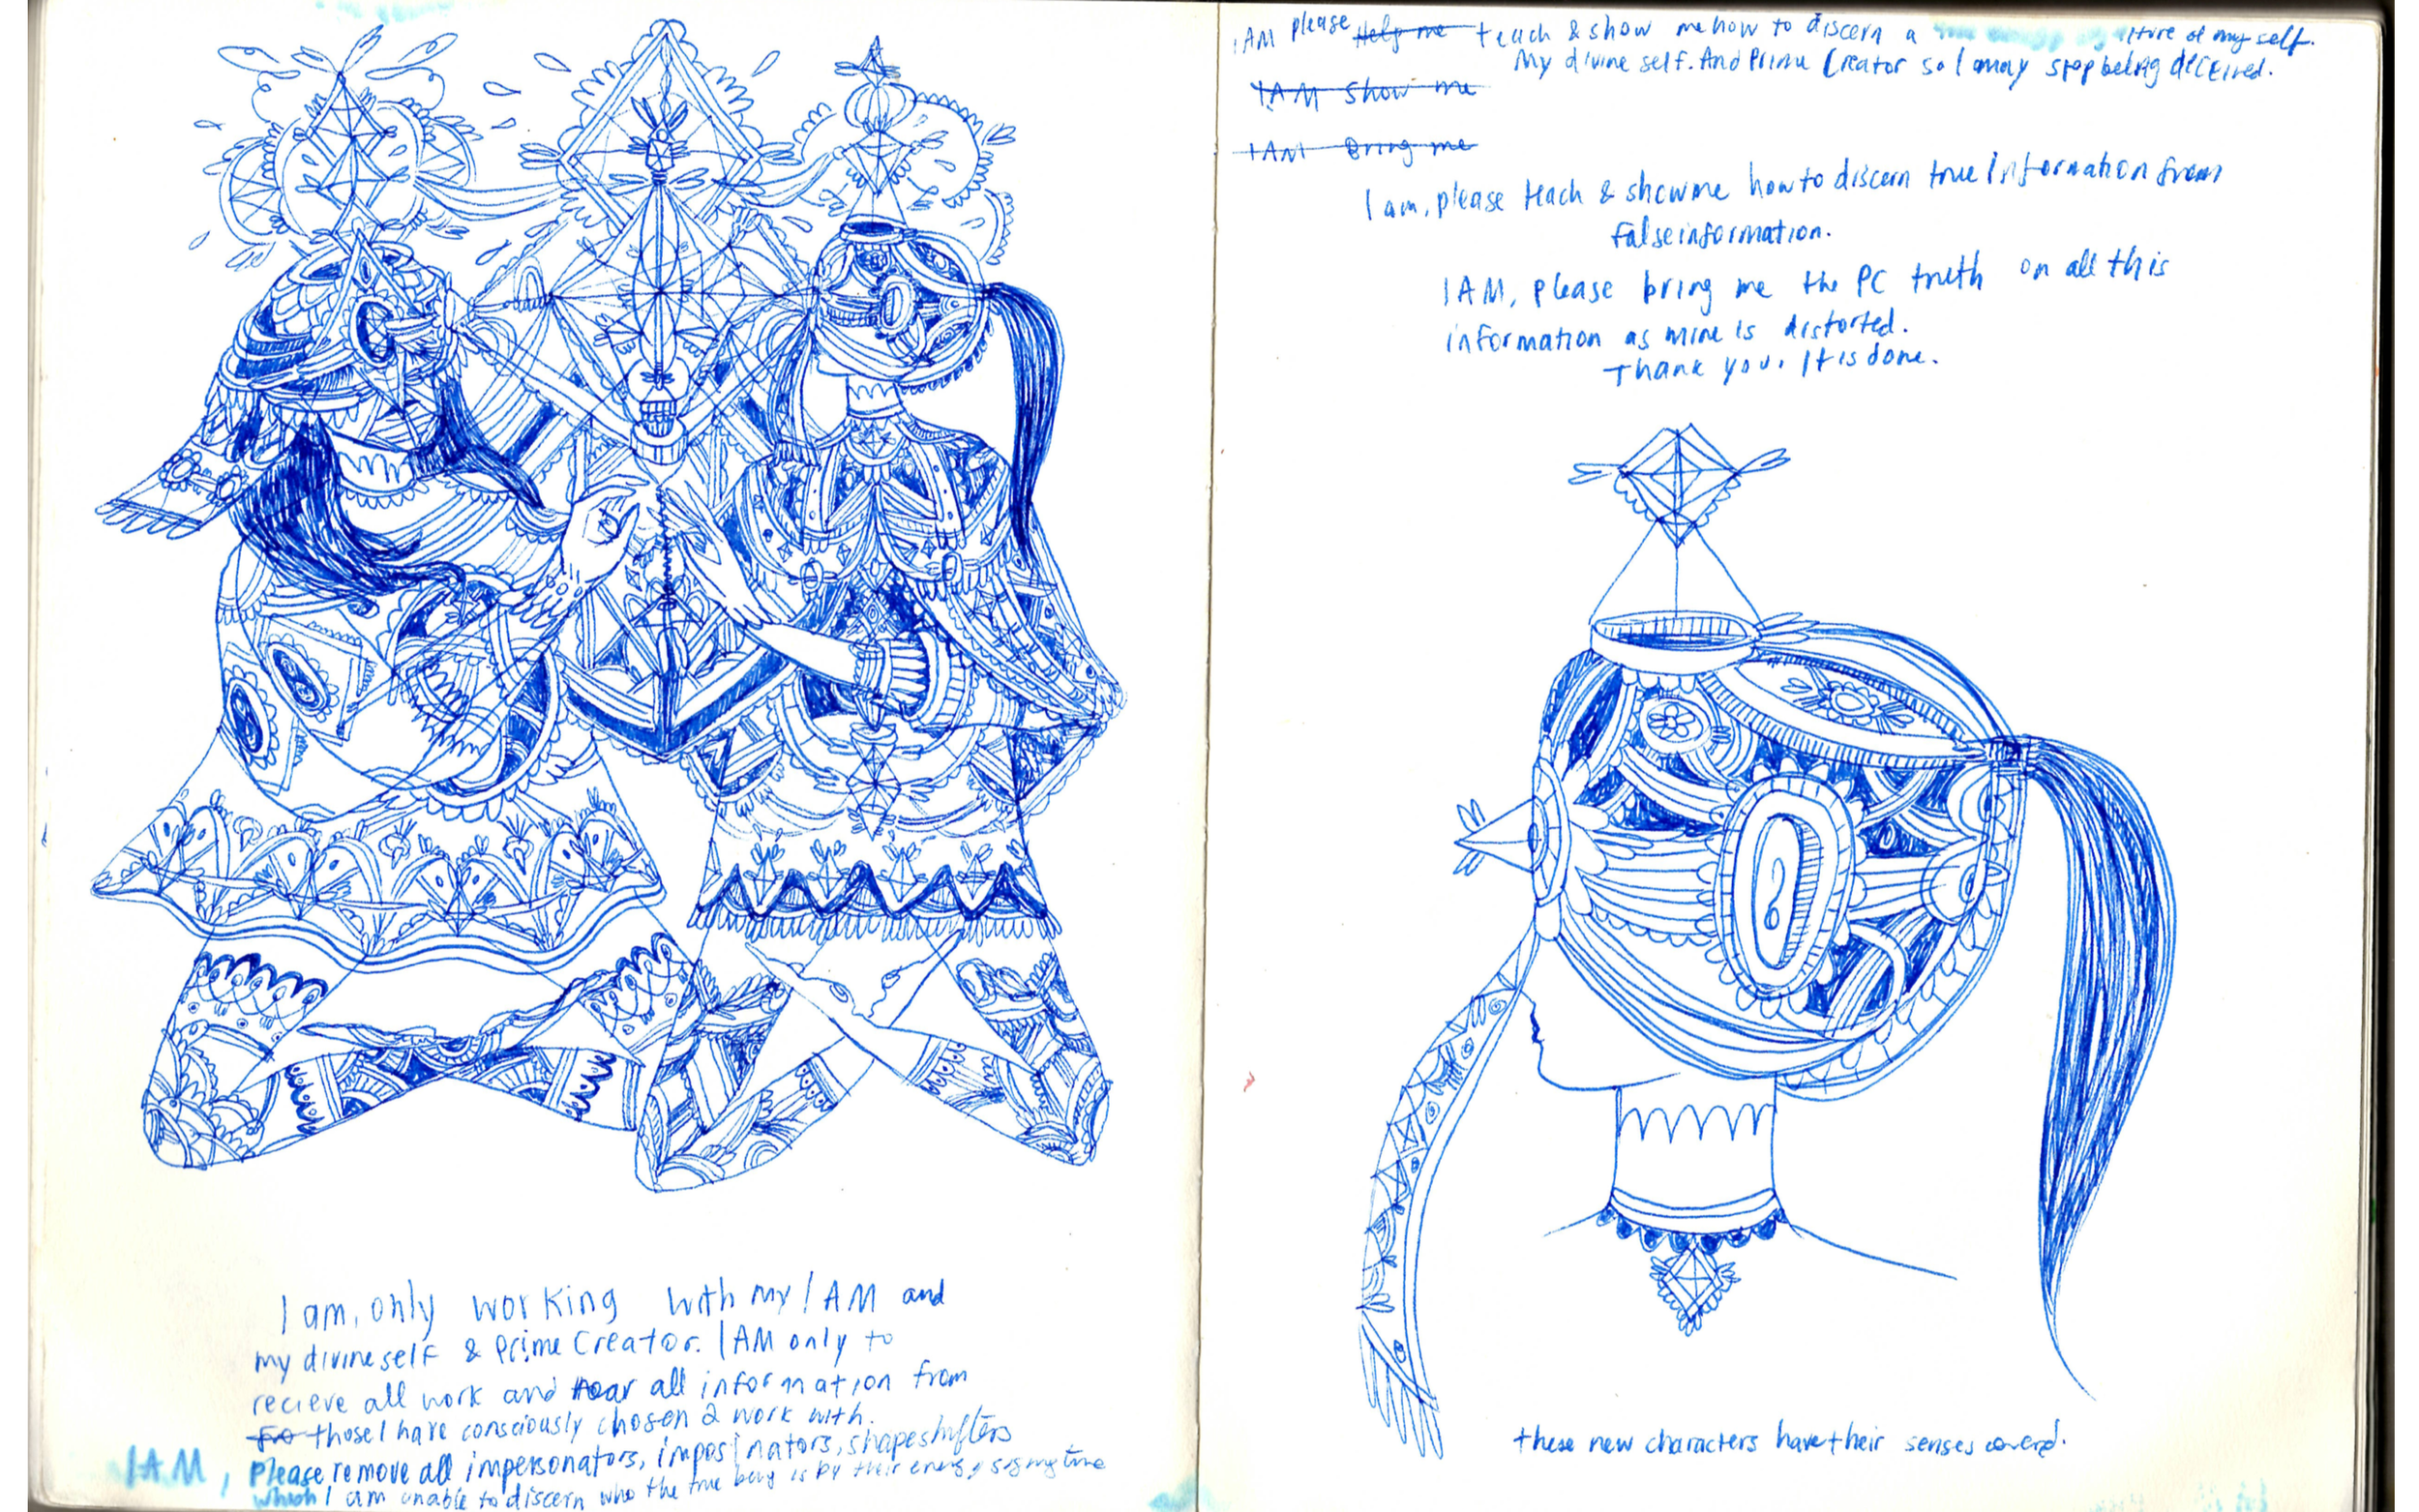 I am, only working with my I AM and
my divine self & Prime Creator. I AM only to
recieve all work and hear all information from
those I have consciously chosen 2 work with.
IAM, please remove all impersonators, imposinators, shapeshifters
which I am unable to discern who the true being is by their energy
IAM please Help me teach & show me how to discern a of my self.
My divine self. And Prime Creator so I may stop being deceived.
IAM Show me
IAM Bring me
I am, please teach & show me how to discern true information from
false information.
IAM, please bring me the PC truth on all this
information as mine is distorted.
Thank you. It is done.
these new characters have their senses coverd.